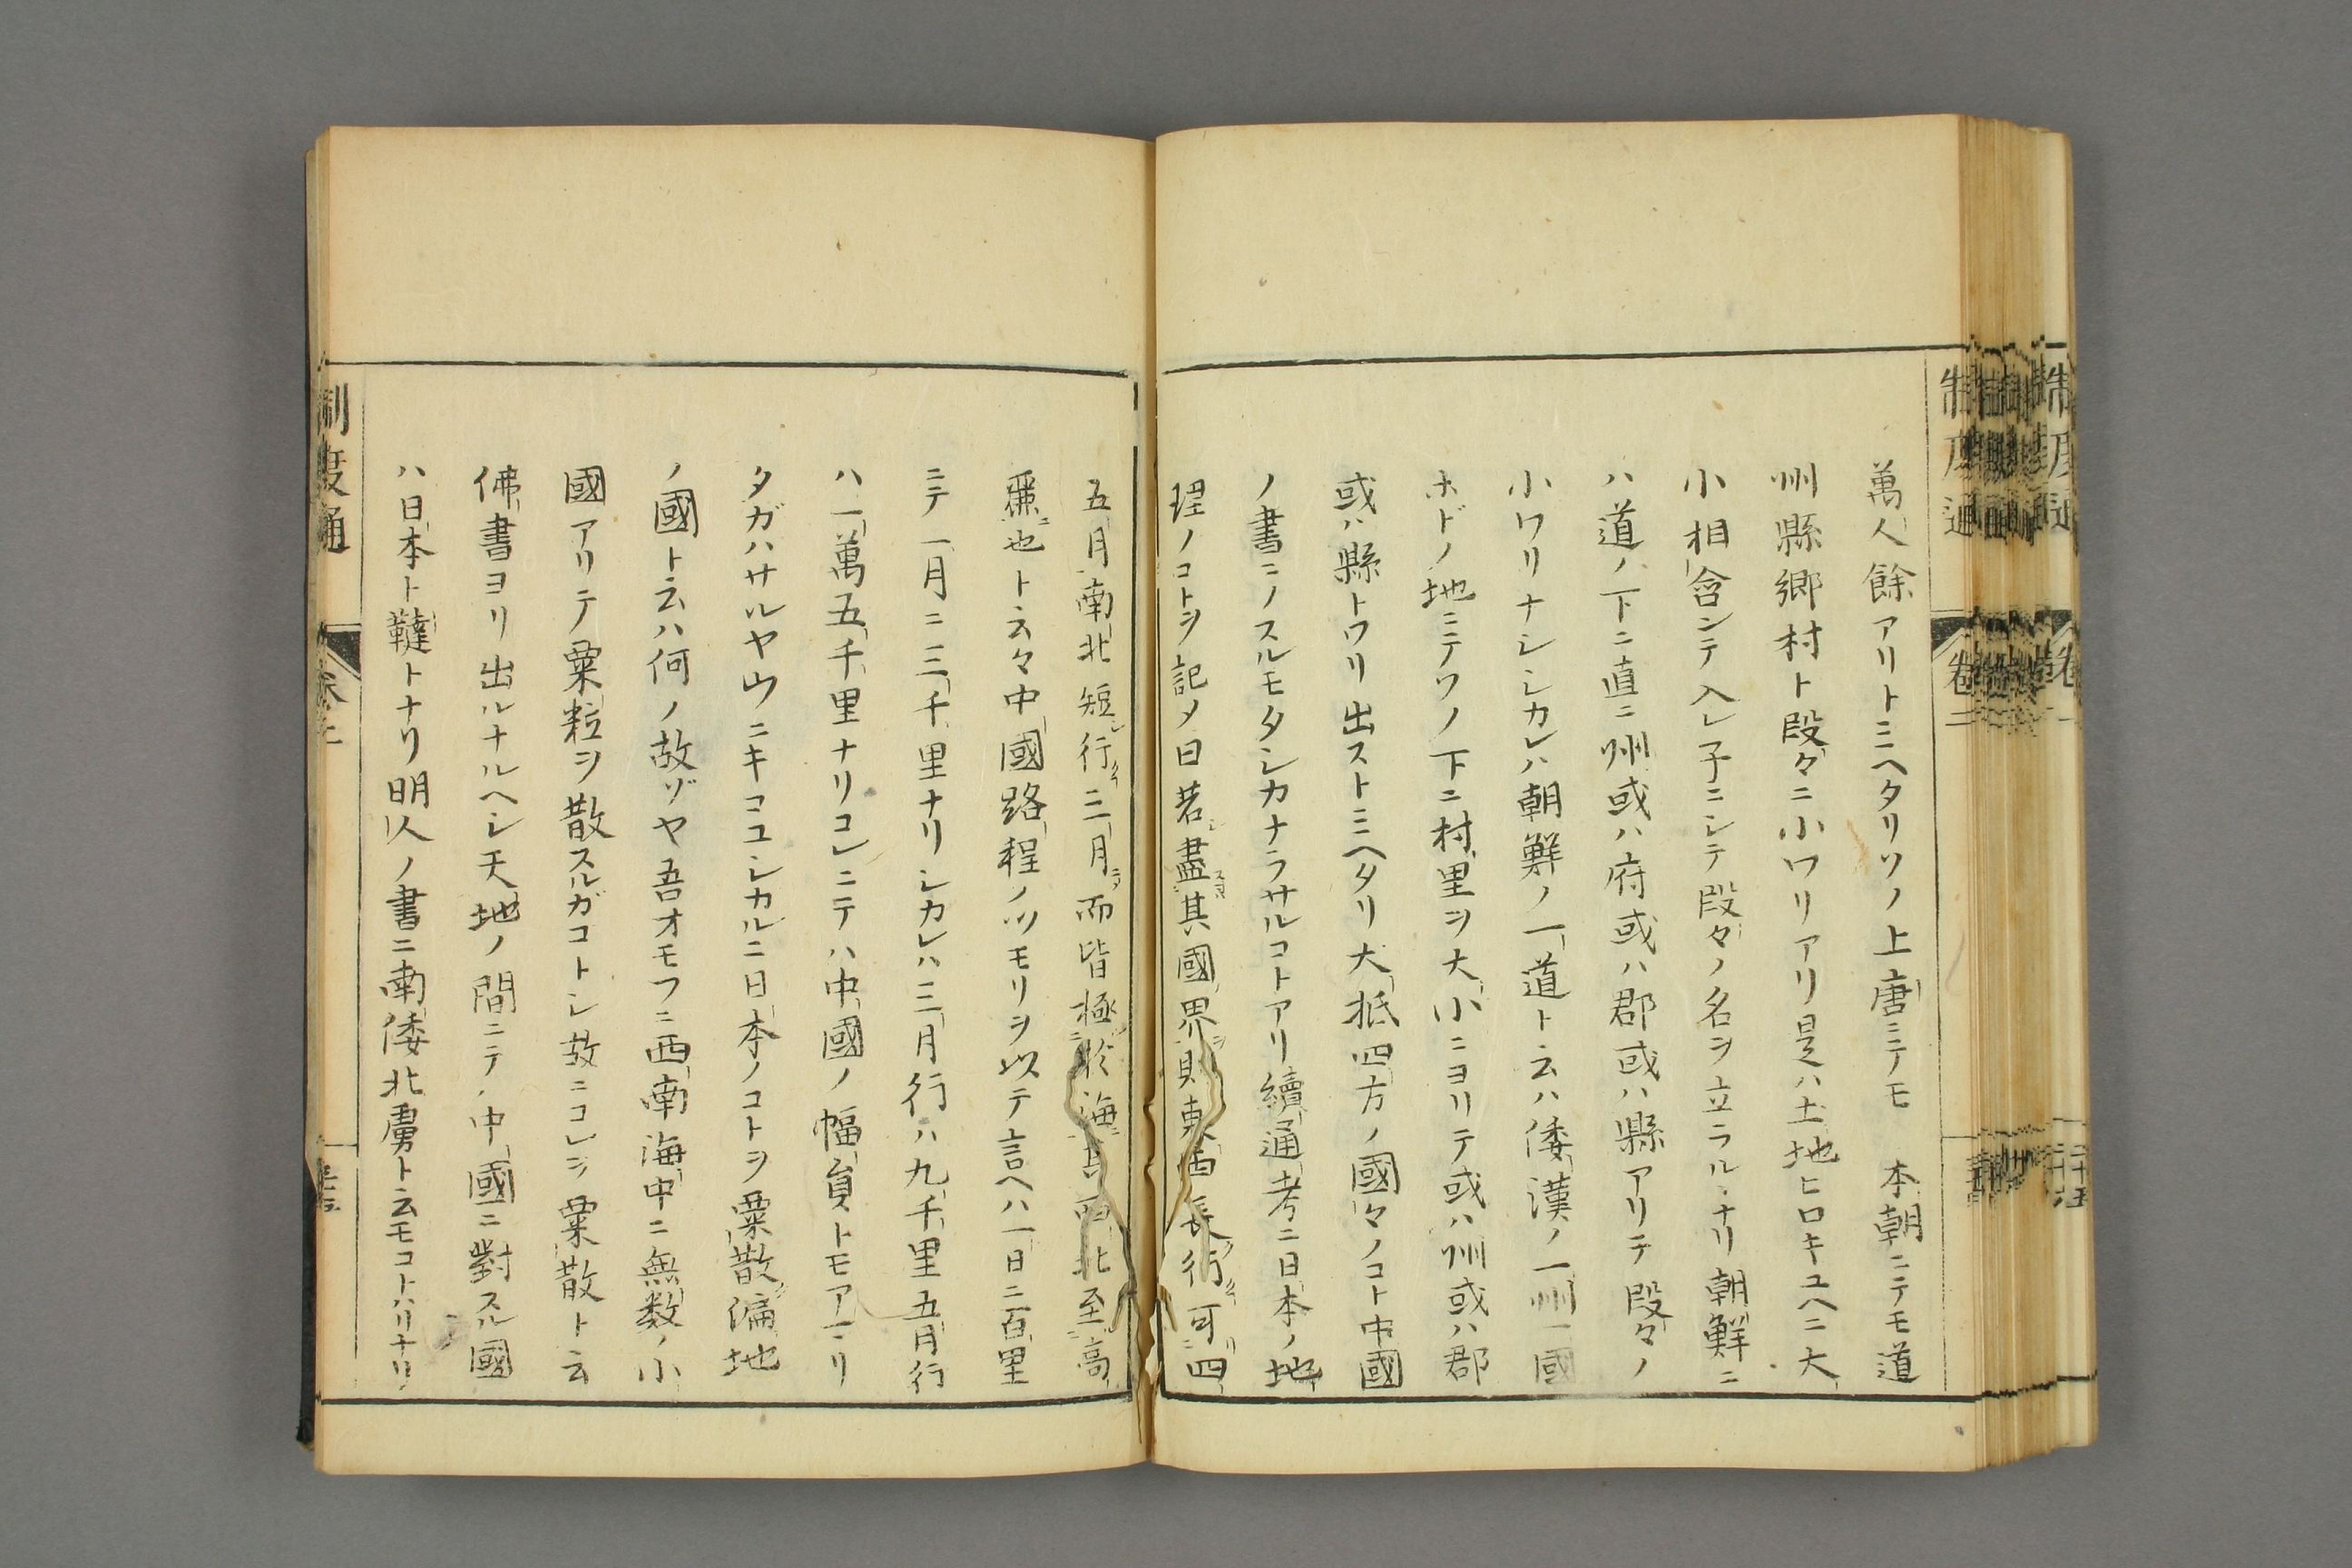 萬人餘アリトミヘタリソノ上唐ニテモ　本朝ニテモ道
州縣郷村ト段々ニ小ワリアリ是ハ土地ヒロキユヘニ大
小相含ンテ入レ子ニシテ段々ノ名ヲ立ラルヽナリ朝鮮ニ
ハ道ノ下ニ直ニ州或ハ府或ハ郡或ハ縣アリテ段々ノ
小ワリナシシカレハ朝鮮ノ一道ト云ハ倭漢ノ一州一國
ホドノ地ニテソノ下ニ村里ヲ大小ニヨリテ或ハ州或ハ郡
或ハ縣トワリ出ストミヘタリ大抵四方ノ國々ノコト中國
ノ書ニノスルモタシカナラサルコトアリ續通考ニ日本ノ地
理ノコトヲ記メ曰若盡其國界則東西長行可四
五月南北短行三月而皆極於海其西北至高
麗也ト云々中國路程ノツモリヲ以テ言ヘハ一日ニ百里
ニテ一月ニ三千里ナリシカレハ三月行ハ九千里五月行
ハ一萬五千里ナリコレニテハ中國ノ幅員トモアマリ
タガハサルヤウニキコユシカルニ日本ノコトヲ粟散偏地
ノ國ト云ハ何ノ故ゾヤ吾オモフニ西南海中ニ無数ノ小
國アリテ粟粒ヲ散スルガコトシ故ニコレヲ粟散ト云
佛書ヨリ出ルナルヘシ天地ノ間ニテ中國ニ對スル國
ハ日本ト韃トナリ明人ノ書ニ南倭北虜ト云モコトハリナリ
制度通
卷二